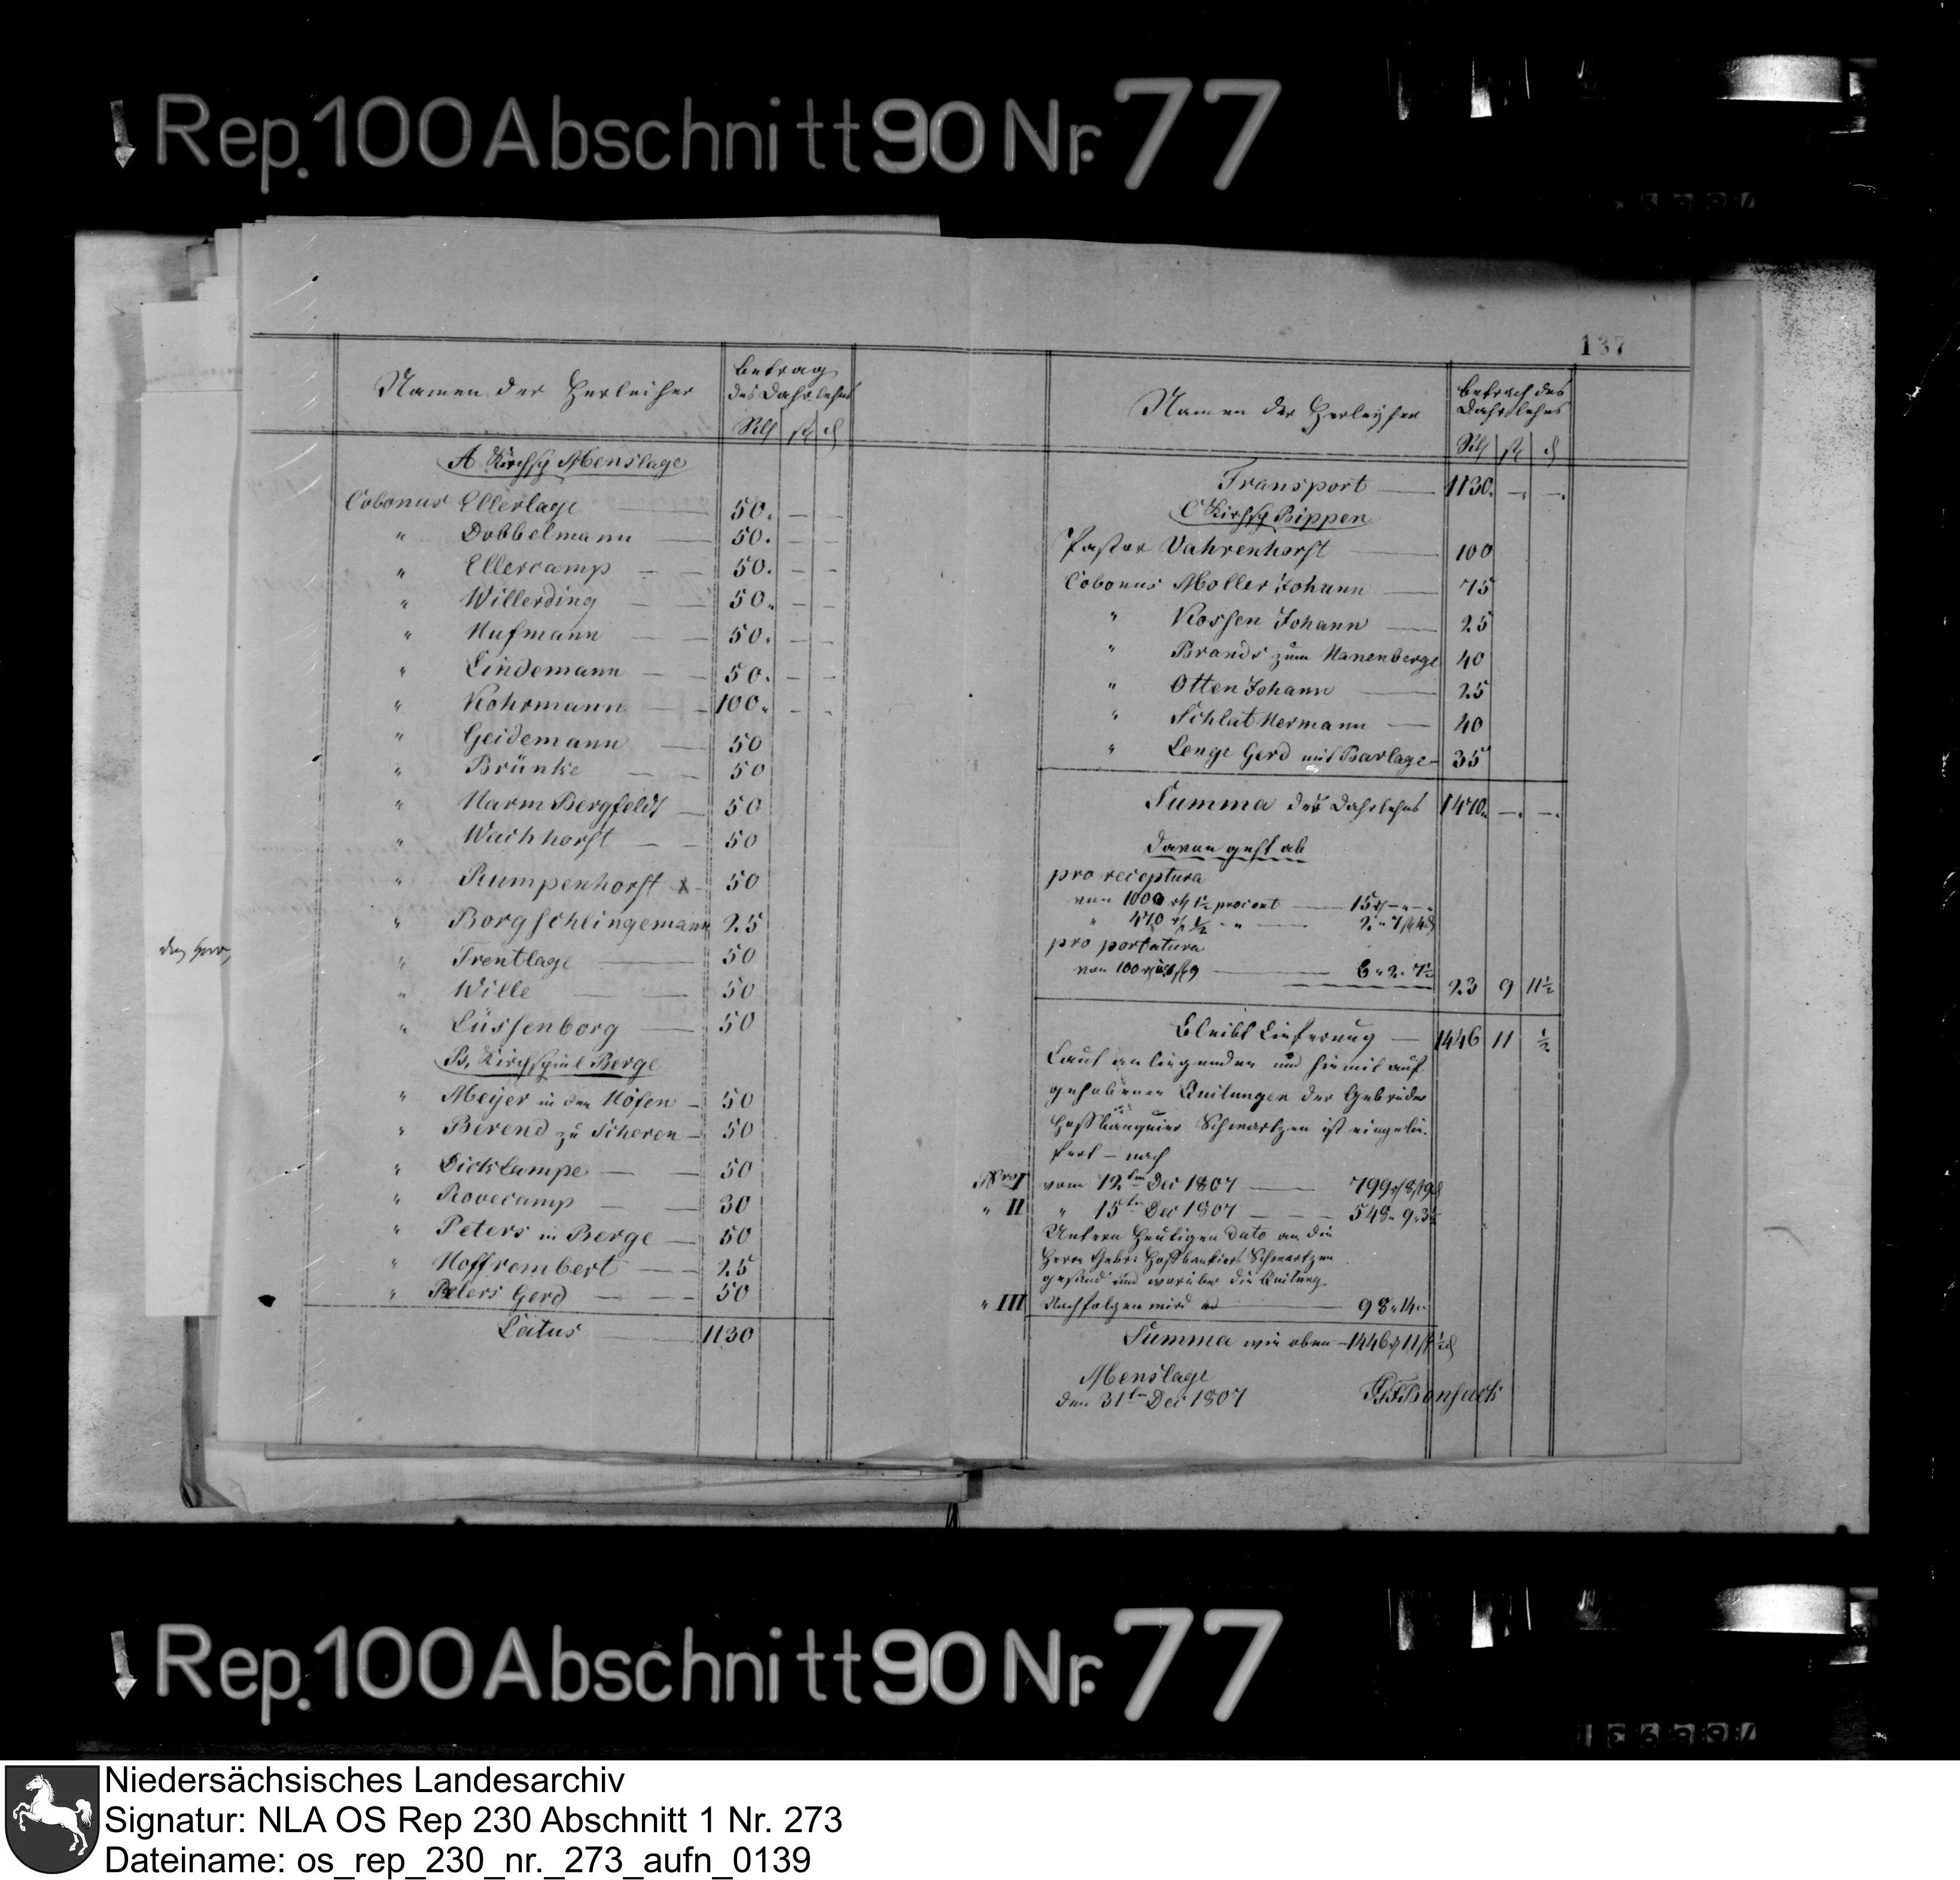 Rep. 100 Abschnitt 90 Nr. 77
137
Namen der Herleiher
Betrag
des Dahrlehns
Rth ß d
A Kirchsp Menslage
Colonus Ellerlage — 50. — —
" Dobbelmann — 50. — —
" Ellercamp — — 50. — —
" Willerding — — 50. — —
" Hufmann — — 50. — —
" Lindemann — — 50. — —
" Kohrmann — — 100. — —
" Geidemann — 50
" Brünke — — 50
" Harm Bergfeldt — 50
" Wachhorst — — 50
" Rumpenhorst x — 50
" Borgschlingemann 25
" Trentlage — 50
" Wille — — 50
" Lüssenborg — 50
B. Kirchspiel Berge
" Meijer in den Höfen — 50
" Berend zu Scheren — 50
" Dicklampe — — 50
" Rovecamp — — 30
" Peters in Berge — 50
" Hoffrembert — — 25
" Peters Gerd — — 50
Latus — 1130
Namen der Herleyher
Betrach des
Dahrlehns
Rth ß d
Transport — 1130. —. —.
C Kirchsp Bippen
Pastor Vahrenhorst — 100
Colonus Moller Johann — 75
" Kossen Johann — 25
" Brands zum Hanenberge 40
" Otten Johann — 25
" Schlat Hermann — 40
" Lenge Gerd mit Barlage — 35
Summa des Dahrlehns 1470. —. —.
Davon geht ab
pro receptura
von 1000 rt 1½ procent — 15 rt — " — "
" 470 rt ½ - " — 2 " 7 ß 4 d
pro portatura
von 100 rt 9 — 6 " 2 " 7½
23 9 11½
Bleibt Lieferung — 1446 11 ½
Laut anliegenden und hiemit auf
gehobenen Quitungen der Gebrüder
Hoffbanquier Schwartzen ist eingelie-
fert — nach
Nro I vom 12ten Dec 1807 — 799 rt 8 ß 9 d
" II " 15ten Dec 1807 — — — 548 " 9 " 3½
Untern Heutigen dato an die
Herrn Gebr: Hoffbankiers Schwartzen
gesand und worüber die Quitung
" III Nachfolgen wird — 98 " 14 "
Summa wie oben — 1446 rt 11 ß ½ d
Menslage
den 31ten Dec 1807
Bonsack
Rep. 100 Abschnitt 90 Nr. 77
Niedersächsisches Landesarchiv
Signatur: NLA OS Rep 230 Abschnitt 1 Nr. 273
Dateiname: os_rep_230_nr._273_aufn_0139